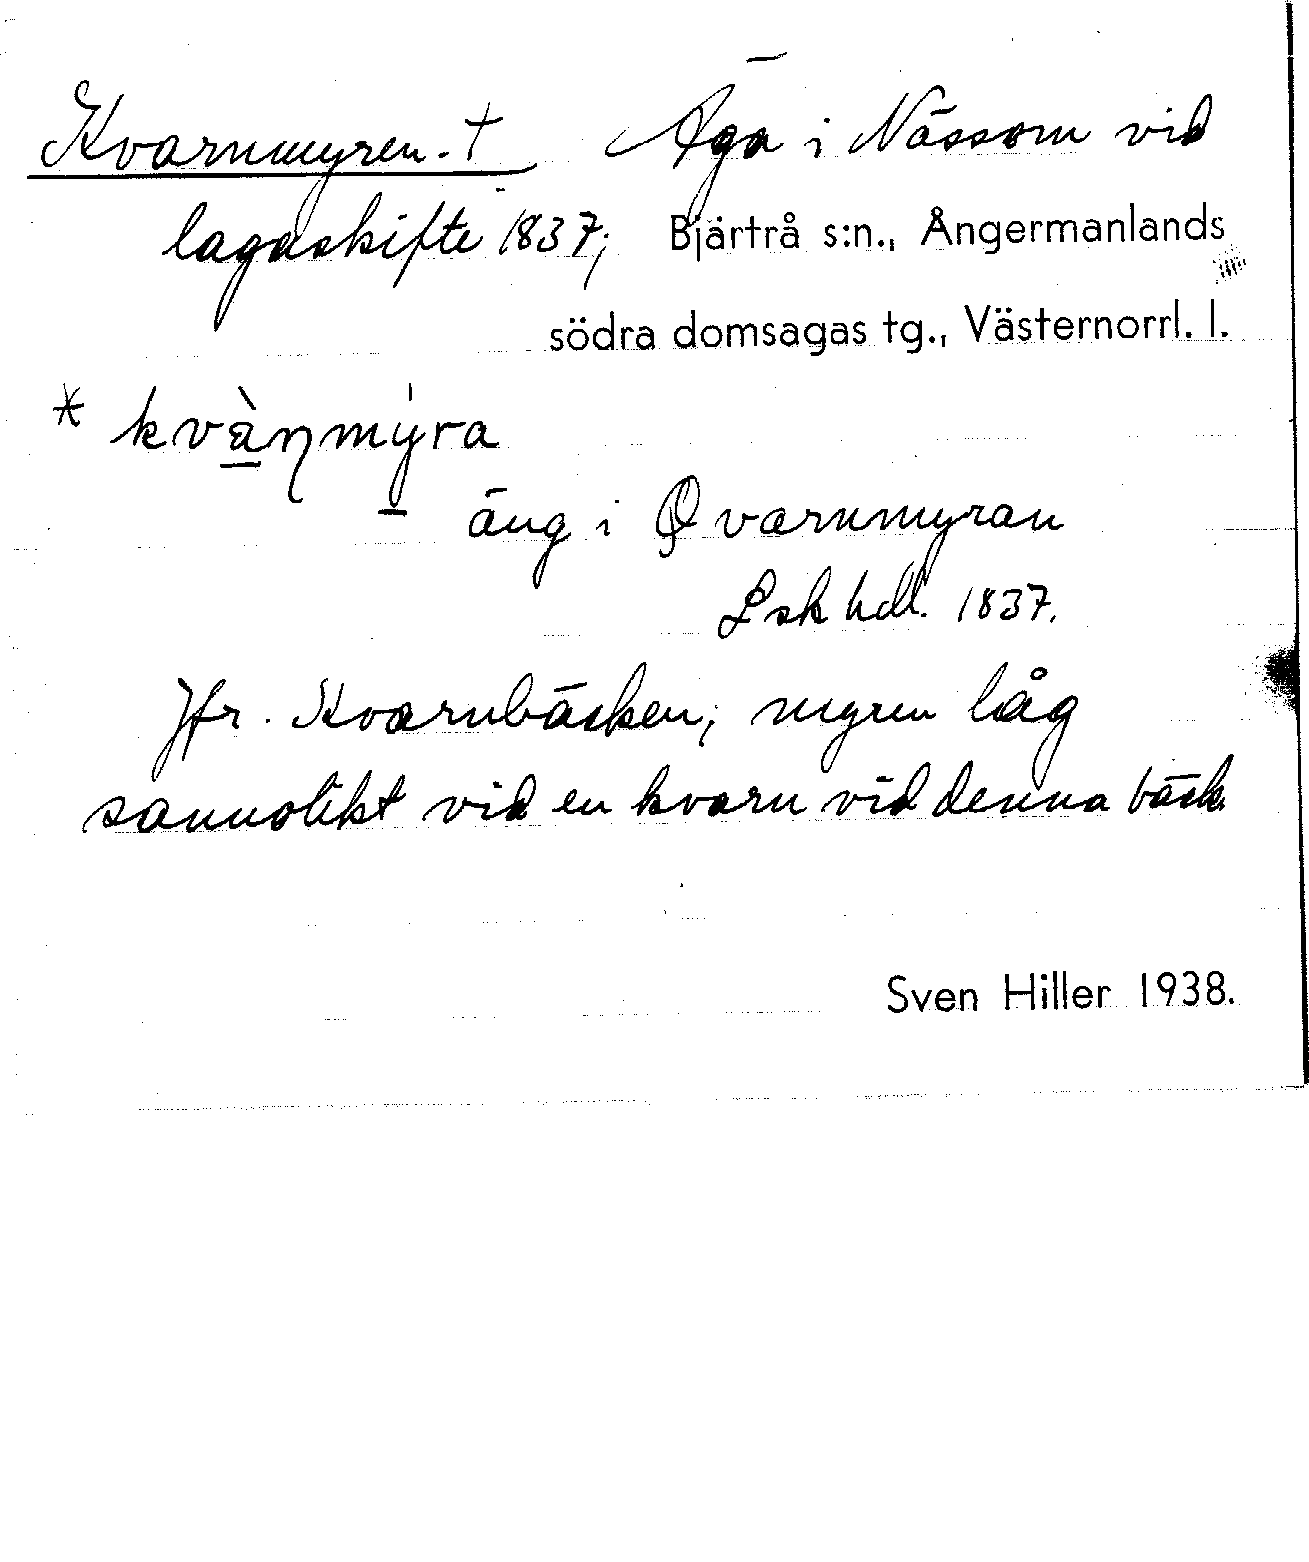 Kvarnmyren. † Äga i Nässom vid
lagaskifte 1837; Bjärtrå s:n., Ångermanlands
södra domsagas tg., Västernorrl. l.
* kvàṇmy̍ra
äng i Qvarnmyran
Lsk hdl. 1837.
Jfr. Kvarnbäcken; myren låg
sannolikt vid en kvarn vid denna bäck.
Sven Hiller 1938.